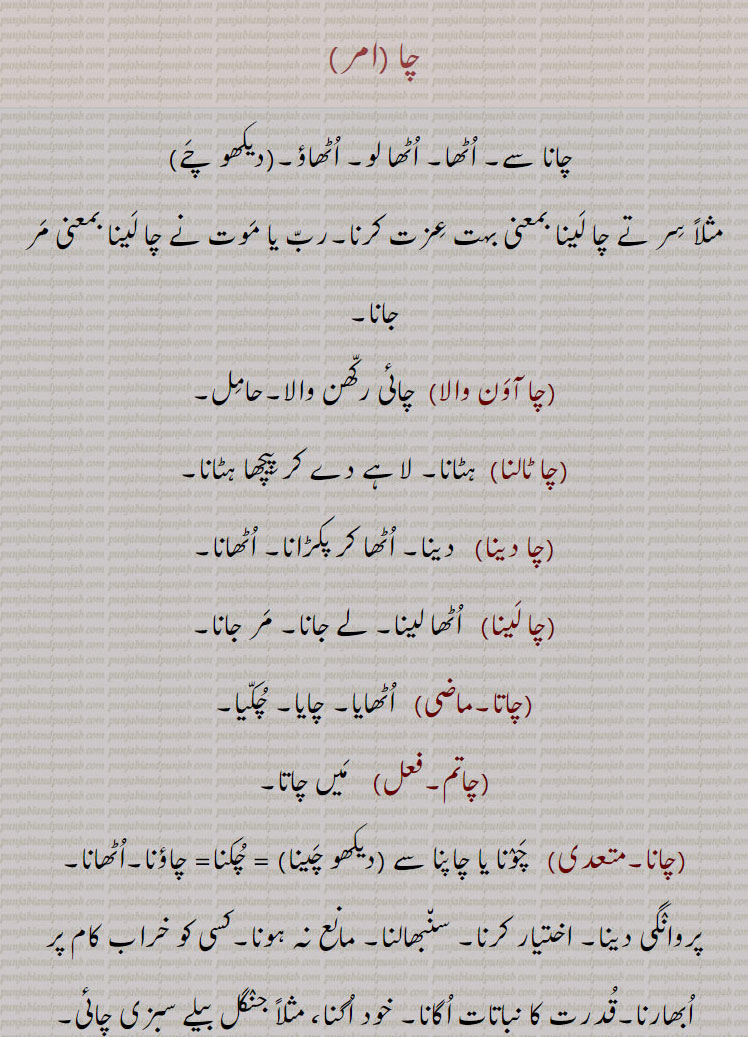 چا (امر)
چانا سے۔ اُٹھا۔ اُٹھا لو۔ اُٹھاؤ۔(دیکھو چَے)
مثلاً سِر تے چا لَینا بمعنی بہت عِزت کرنا۔ربّ یا مَوت نے چا لَینا بمعنی مَر
جانا۔
(چا آوَن والا) چائی رکّھن والا۔حامِل۔
(چا ٹالنا) ہٹانا۔ لاہے دے کر پِیچھا ہٹانا۔
(چا دینا) دینا۔ اُٹھا کر پکڑانا۔ اُٹھانا۔
(چا لَینا) اُٹھا لینا۔ لے جانا۔ مَر جانا۔
(چاتا۔ماضی) اُٹھایا۔ چایا۔ چُکّیا۔
(چاتم۔فعل) مَیں چاتا۔
(چانا۔متعدی) چَوْنا یا چاپنا سے (دیکھو چَینا) = چُکنا= چاؤنا۔اُٹھانا۔
پروانگی دینا۔ اختیار کرنا۔ سنّبھالنا۔ مانع نہ ہونا۔کسی کو خراب کام پر
اُبھارنا۔قُدرت کا نباتات اُگانا۔ خود اُگنا، مثلاً جنگل بیلے سبزی چائی۔